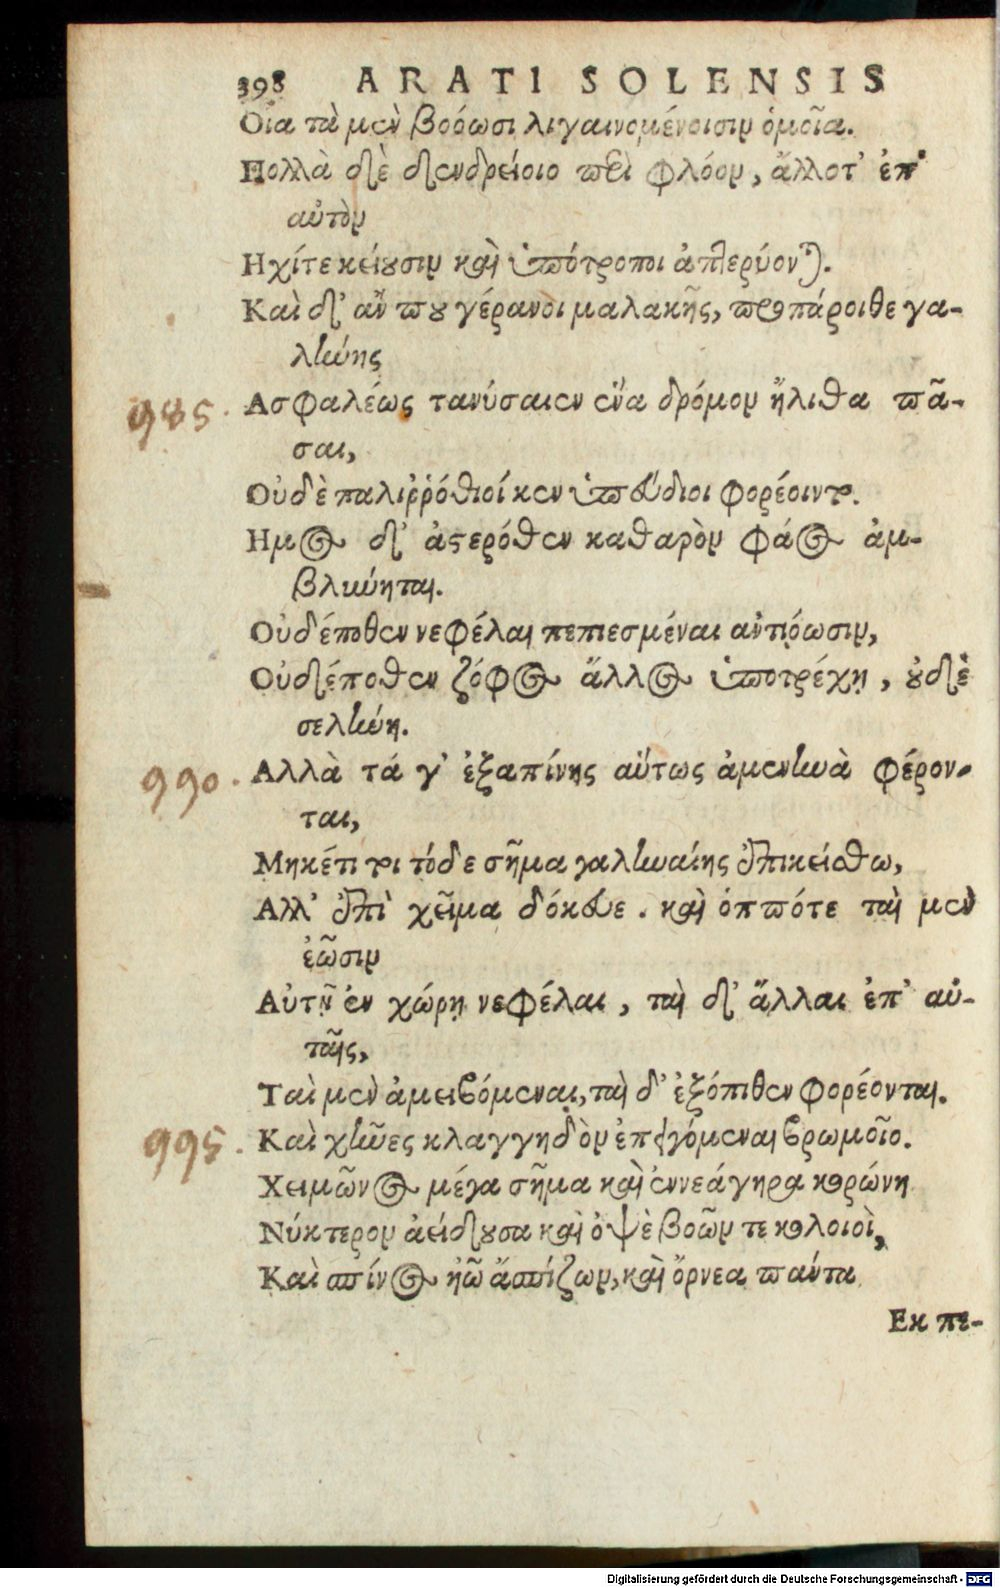 398 ARATI SOLENSIS
Οἷα τὰ μὲν βοόωσι λιγαινομένοισιν ὁμοῖα.
Πολλὰ δὲ δενδρείοιο περὶ φλόον, ἄλλοτ' ἐπ'
αὐτὸν
Ηχίτε κείουσιν καὶ ὑπότροποι ἀπτερύονται.
Καὶ δ' ἄν που γέρανοι μαλακῆς, προπάροιθε γα-
λήνης
985. Ασφαλέως τανύσαιεν ἕνα δρόμον ἤλιθα πᾶ-
σαι,
Οὐδὲ παλιῤῥόθιοί κεν ὑπεύδιοι φορέοιντο.
Ημος δ' ἀστερόθεν καθαρὸν φάος ἀμ-
βλύνηται.
Οὐδέποθεν νεφέλαι πεπιεσμέναι ἀντιόωσιν,
Οὐδέποθεν ζόφος ἄλλος ὑποτρέχῃ, οὐδὲ
σελήνη.
990. Αλλὰ τά γ' ἐξαπίνης αὕτως ἀμενηνὰ φέρον-
ται,
Μηκέτι τοι τόδε σῆμα γαληναίης ἐπικείσθω,
Αλλ' ἐπὶ χεῖμα δόκευε. καὶ ὁππότε ταὶ μὲν
ἐῶσιν
Αὐτῇ ἐν χώρῃ νεφέλαι, ταὶ δ' ἄλλαι ἐπ' αὐ-
ταῖς,
Ταὶ μὲν ἀμειβόμεναι, ταὶ δ' ἐξόπιθεν φορέονται.
995. Καὶ χῆνες κλαγγηδὸν ἐπειγόμεναι βρωμοῖο.
Χειμῶνος μέγα σῆμα καὶ ἐννεάγηρα κορώνη
Νύκτερον ἀείδουσα καὶ ὀψὲ βοῶν τε κολοιοὶ,
Καὶ σπίνος ἠῶ σπίζων, καὶ ὄρνεα πάντα
Εκ πε-
Digitalisierung gefördert durch die Deutsche Forschungsgemeinschaft - DFG